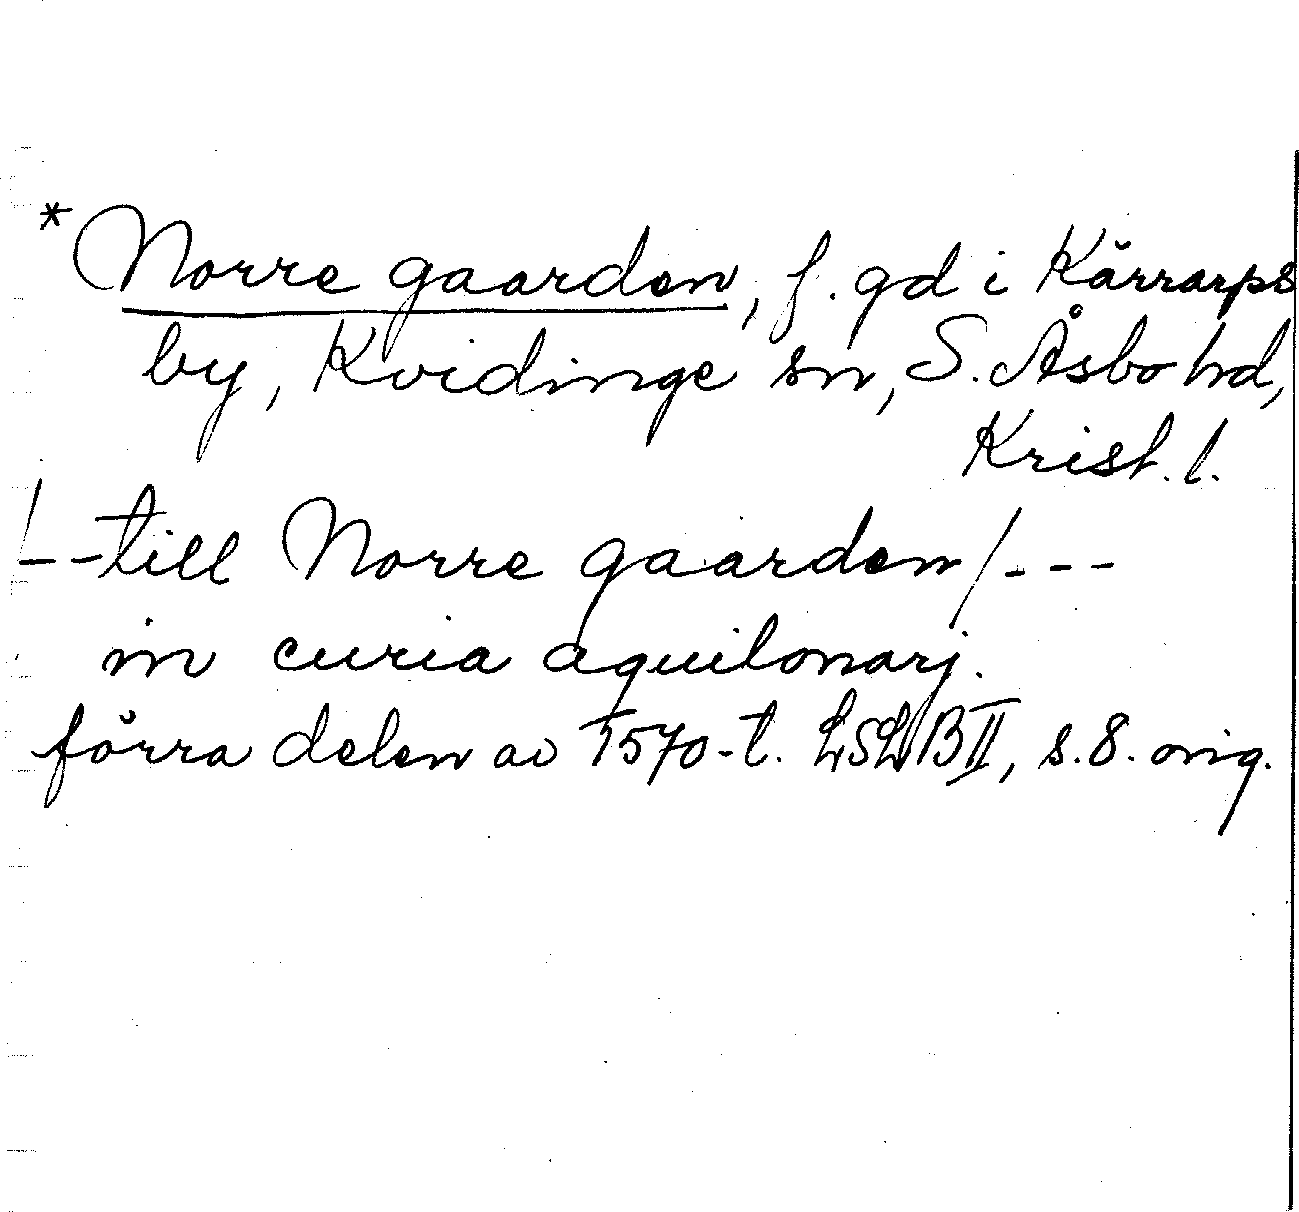 *Norre gaarden, f. gd i Kärrarps
by, Kvidinge sn, S. Åsbo hd,
Krist. l.
/--till Norre gaarden/---
in curia aquilonarj.
förra delen av 1570-t. LSLB II, s. 8. orig.